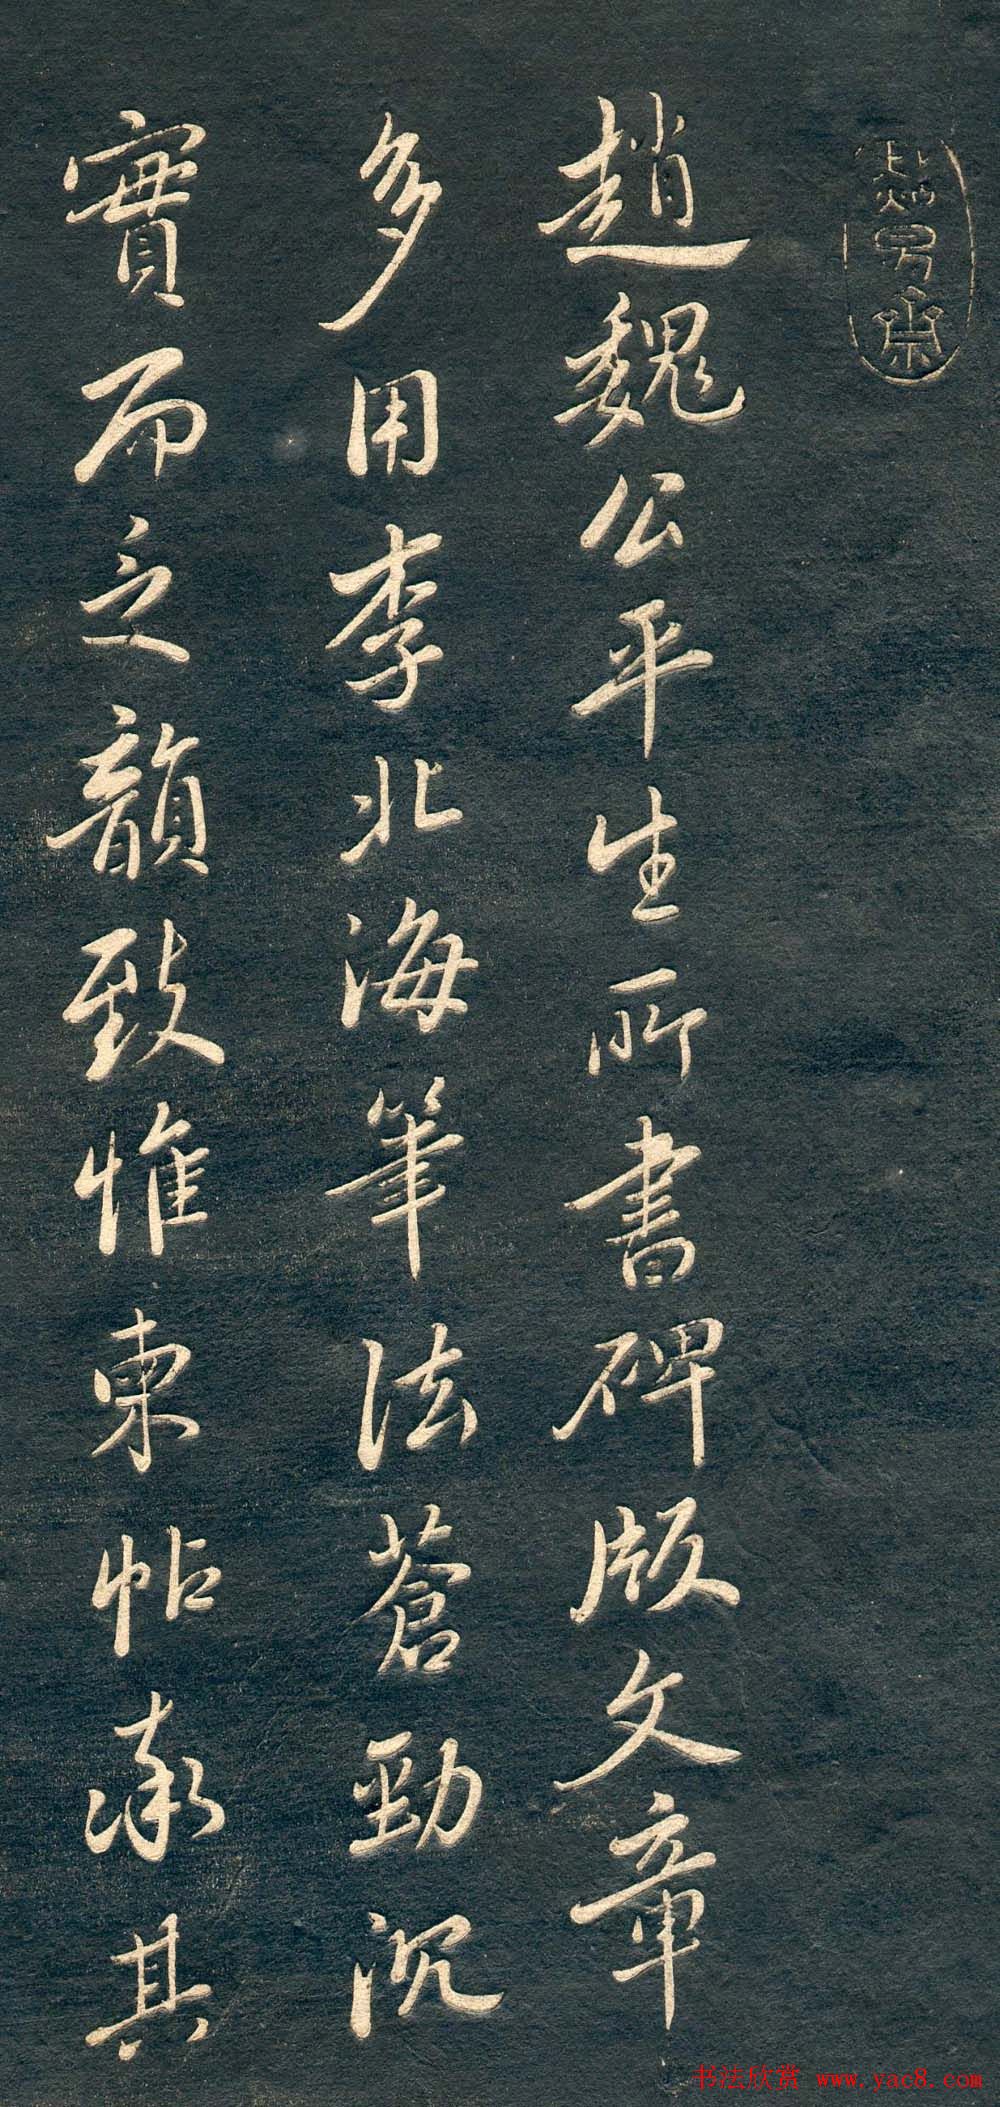 趙魏公平生所書碑版文章
多用李北海筆法蒼勁沉
實而乏韻致惟柬帖家其
书法欣赏 www.yac8.com